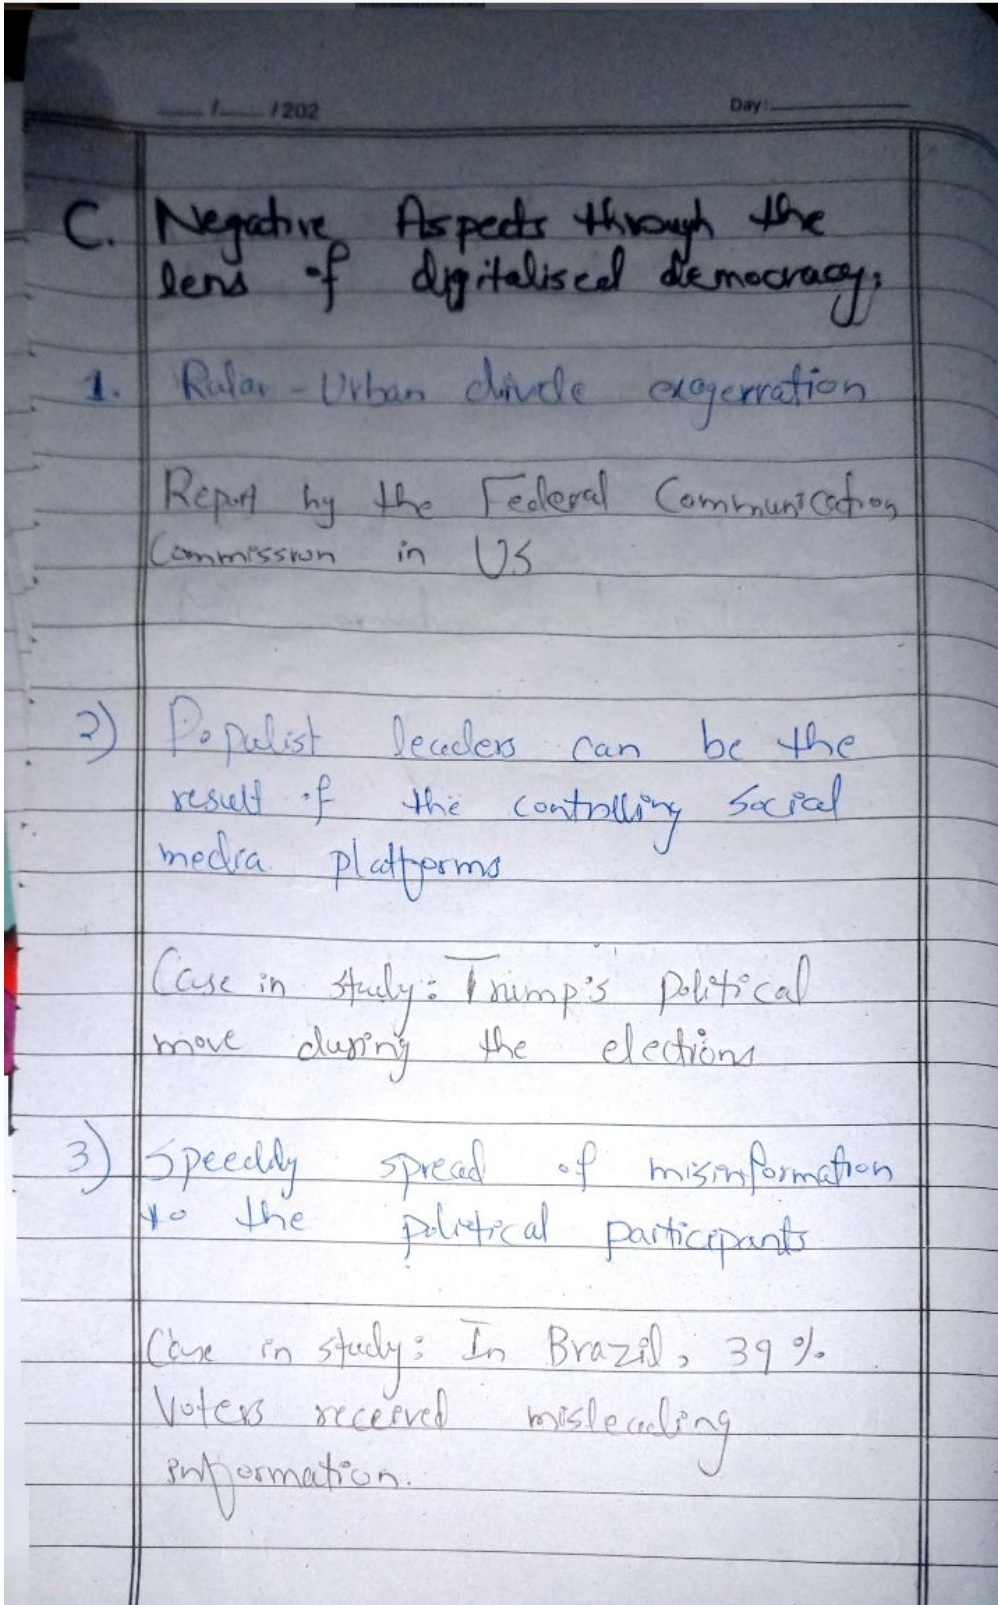 / /202
Day:
C. Negative Aspects through the
lens of digitalised democracy;
1. Rular - Urban divide exagerration
Report by the Federal Communication
Commission in US
2) Populist leaders can be the
result of the controlling social
media platforms
Case in study: Trump's political
move during the elections
3) Speedly spread of misinformation
to the political participants
Case in study: In Brazil, 39 %.
Voters received misleading
information.